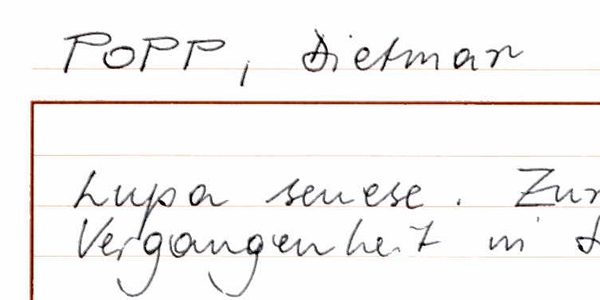 POPP, Dietmar
Lupa senese. Zur
Vergangenheit in